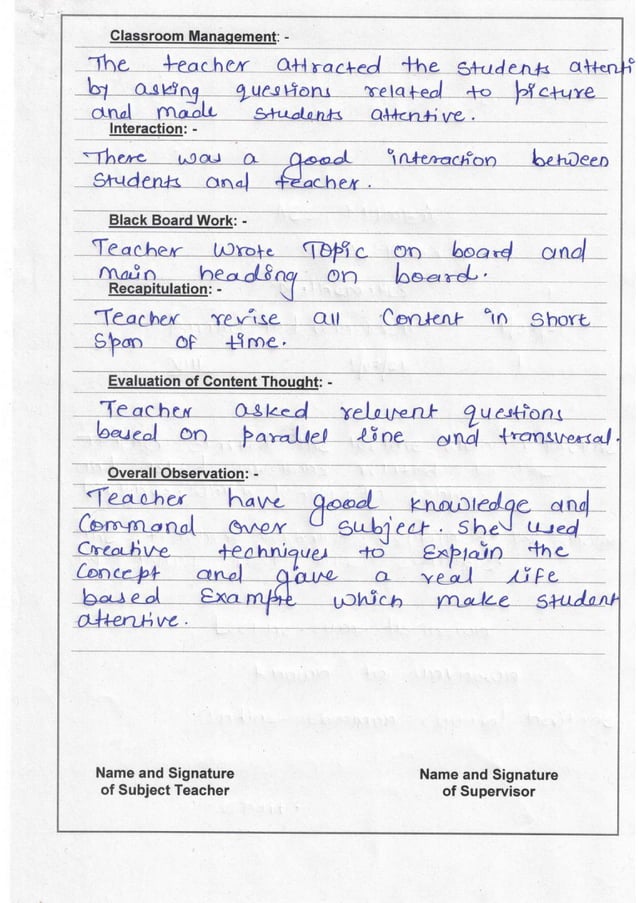 Classroom Management: -
The teacher attracted the students attenti
by asking questions related to picture
and made students attentive.
Interaction: -
There was a good interaction between
students and teacher.
Black Board Work: -
Teacher wrote Topic on board and
main heading on board.
Recapitulation: -
Teacher revise all content in short
span of time.
Evaluation of Content Thought: -
Teacher asked relevent questions
based on parallel line and transversal.
Overall Observation: -
Teacher have good knowledge and
Command over subject. She used
Creative techniques to Explain the
Concept and gave a real life
based Example which make student
attentive.
Name and Signature Name and Signature
of Subject Teacher of Supervisor